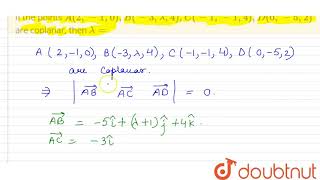 If the points A(2, −1, 0), B(−3, λ, 4), C(−1, −1, 4), D(0, −5, 2)
are coplanar, then λ =
A (2,-1,0), B(-3,λ,4), C(-1,-1,4), D(0,-5,2)
are coplanar.
⇒ | AB⃗ AC⃗ AD⃗ | = 0.
AB⃗ = -5î+(λ+1)ĵ+4k̂.
AC⃗ = -3î
doubtnut